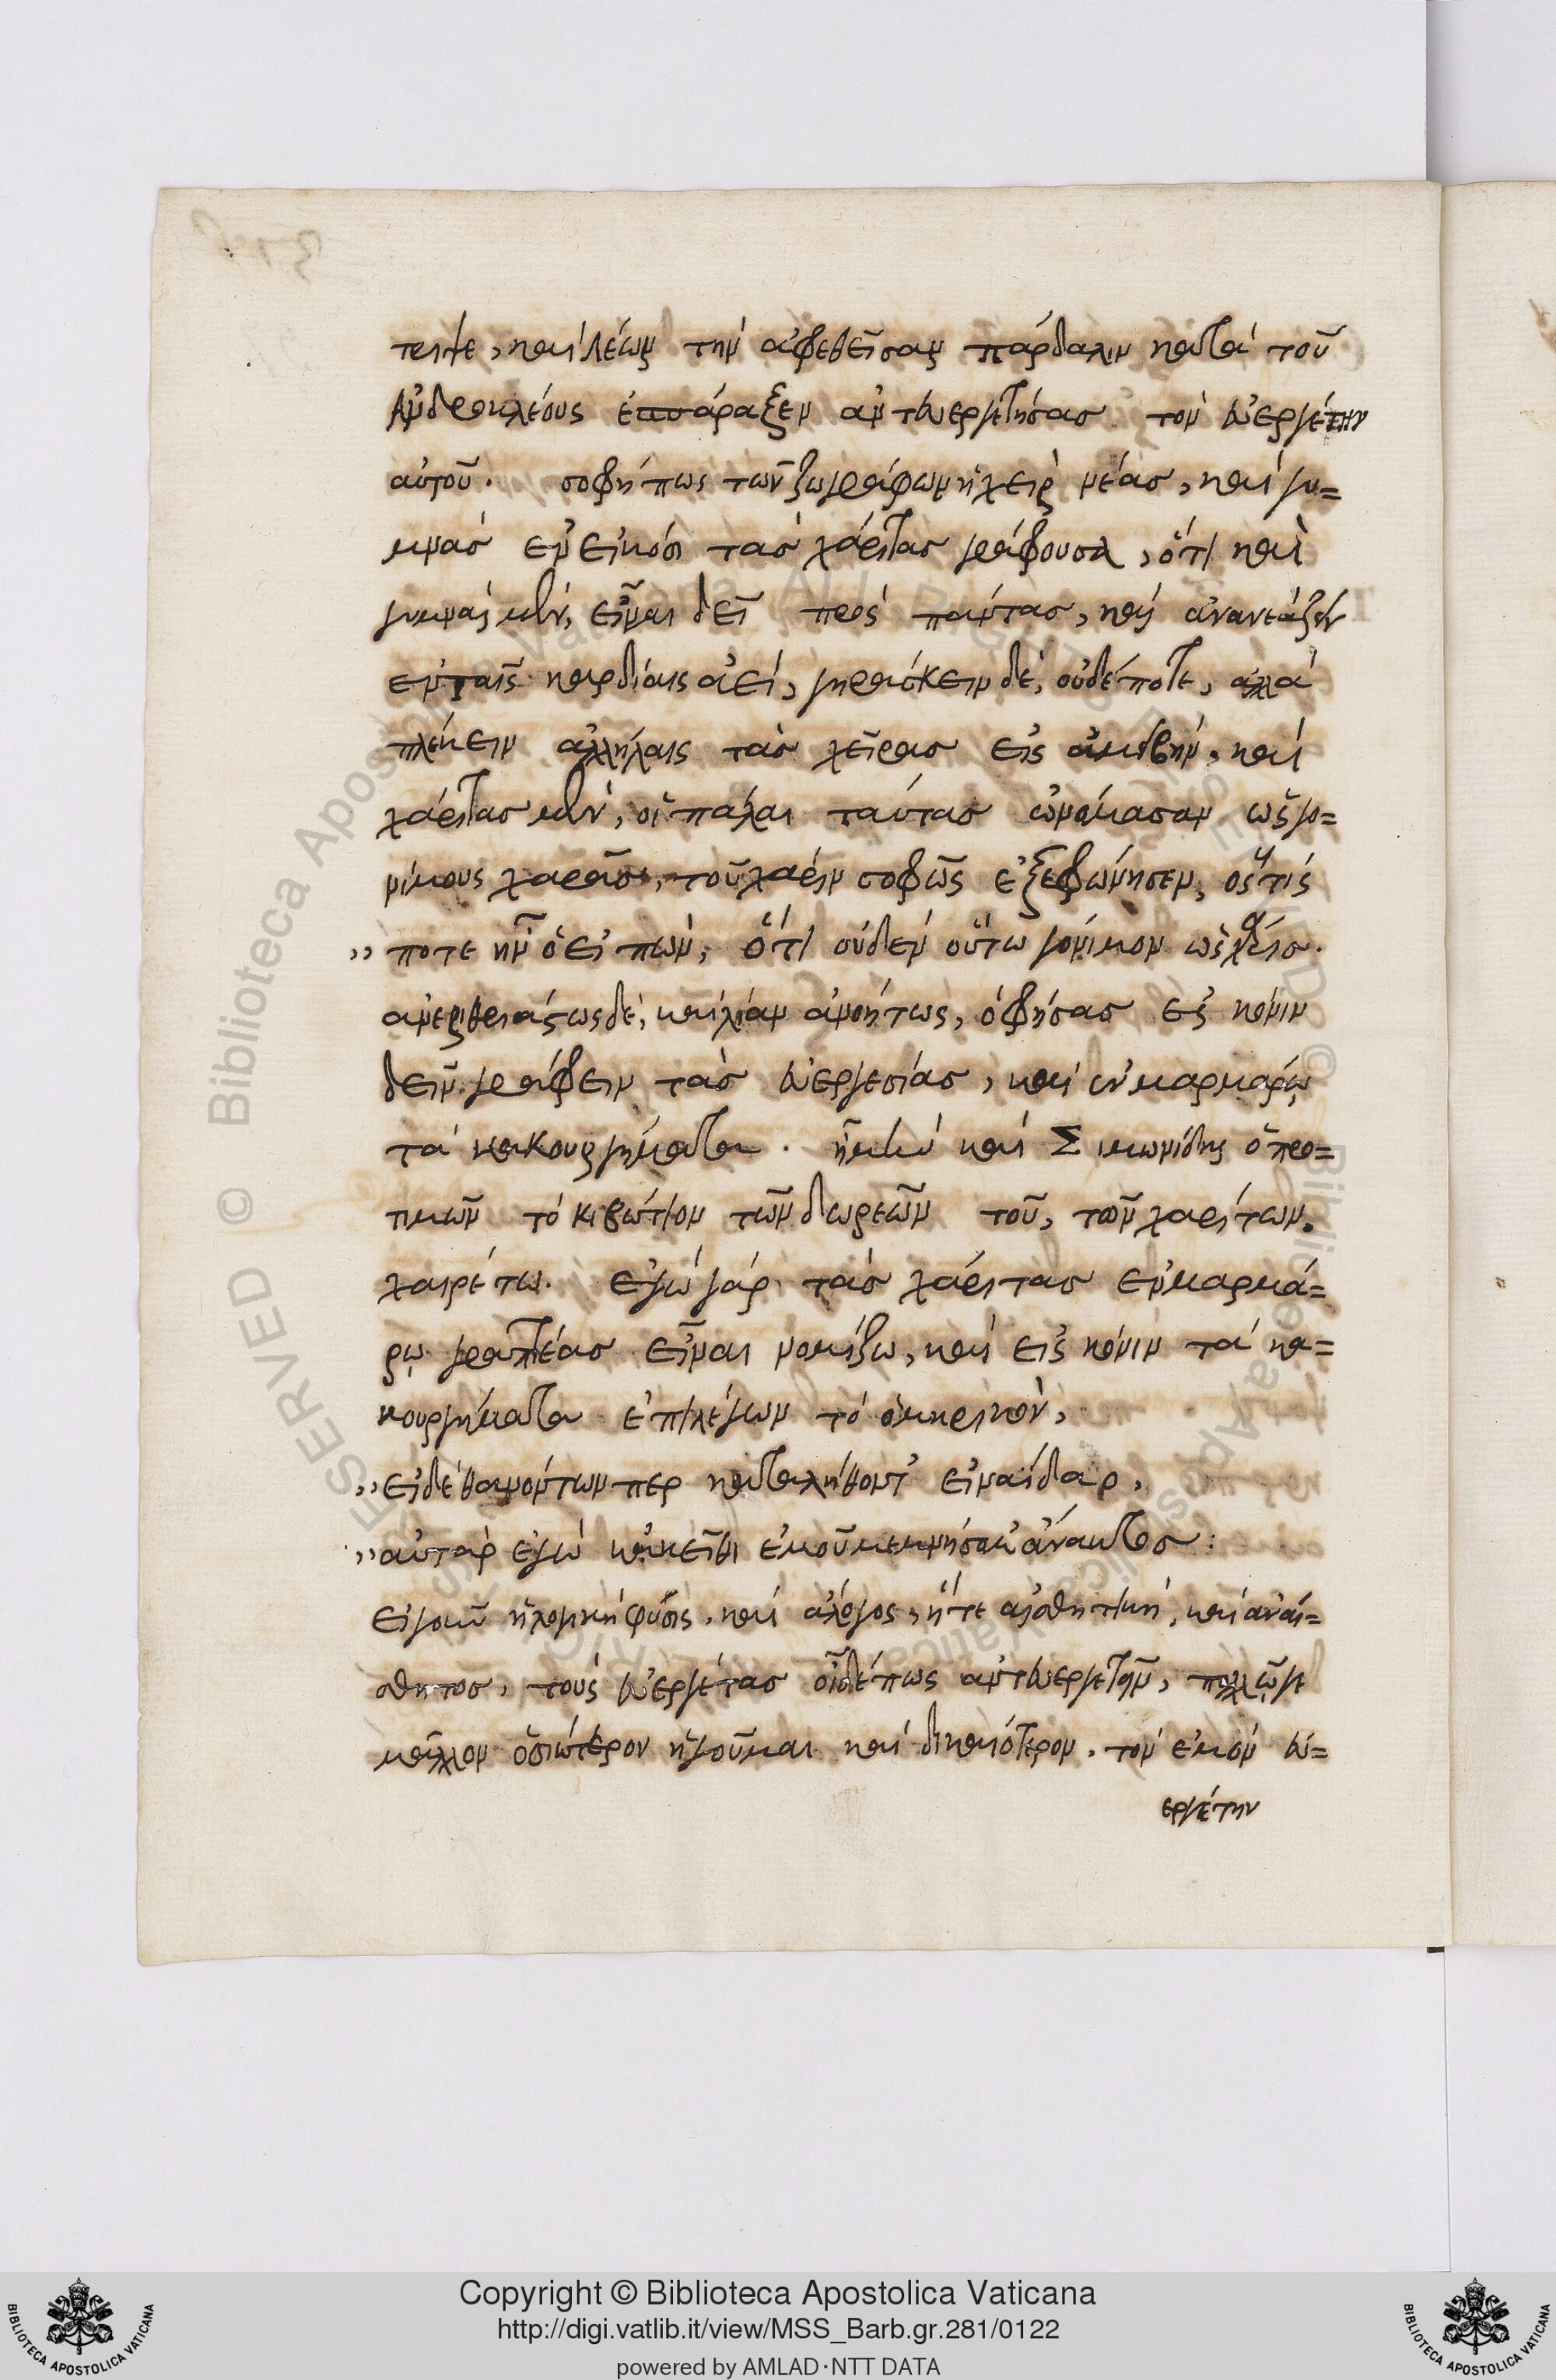 τειψε, καὶ λέων τὴν ἀφεθεῖσαν πάρδαλιν κατὰ τοῦ
Ἀνδροκλέους ἐσπάραξεν ἀντευεργετήσας τὸν εὐεργέτην
αὐτοῦ. σοφή πως τῶν ζωγράφων ἡ χεὶρ νέας, καὶ γυ=
μνὰς ἐν εἰκόσι τὰς χάριτας γράφουσα, ὅτι καὶ
γυμνὰς μὲν, εἶναι δεῖ πρὸς πάντας, καὶ ἀνανεάζειν
ἐν ταῖς καρδίαις ἀεὶ, γηράσκειν δὲ, οὐδέποτε, ἀλλὰ
πλέκειν ἀλλήλαις τὰς χεῖρας εἰς ἀμοιβὴν, καὶ
χάριτας μὲν, οἱ πάλαι ταύτας ὠνόμασαν ὡς γο=
νίμους χαρᾶς, τοῦ χάριν σοφῶς ἐξεφώνησεν, ὅστίς
,, ποτε ἦν ὁ εἰπὼν, ὅτι οὐδὲν οὕτω γόνιμον ὡς χάρις.
ἀπεριθριάστως δὲ, καὶ λίαν ἀνοήτως, ὁ φήσας εἰς κόνιν
δεῖν γράφειν τὰς εὐεργεσίας, καὶ ἐν μαρμάρῳ
τὰ κακουργήματα. καὶ Σιμωνίδης ὁ προ=
τιμῶν τὸ κιβώτιον τῶν δωρεῶν τοῦ, τῶν χαρίτων,
χαιρέτω. ἐγὼ γὰρ τὰς χάριτας ἐν μαρμά=
ρῳ γραπτέας εἶναι νομίζω, καὶ εἰς κόνιν τὰ κα=
κουργήματα ἐπιλέγων τὸ ὁμηρικὸν,
,, εἰ δὲ θανόντων περ καταλήθοντ' εἰν ἀΐδαο,
,, αὐτὰρ ἐγὼ κἀκεῖθι ἐμοῦ μεμνήσομ' ἄνακτος:
εἰ γοῦν ἡ λογικὴ φύσις, καὶ ἄλογος, ἥ τε αἰσθητικὴ, καὶ ἀναί=
σθητος, τοὺς εὐεργέτας οἶδέ πως ἀντευεργετεῖν, πολλῷ γε
μᾶλλον ὁσιώτερον ἡγοῦμαι καὶ δικαιότερον, τὸν ἐμὸν εὐ=
εργέτην
Copyright © Biblioteca Apostolica Vaticana
http://digi.vatlib.it/view/MSS_Barb.gr.281/0122
powered by AMLAD·NTT DATA